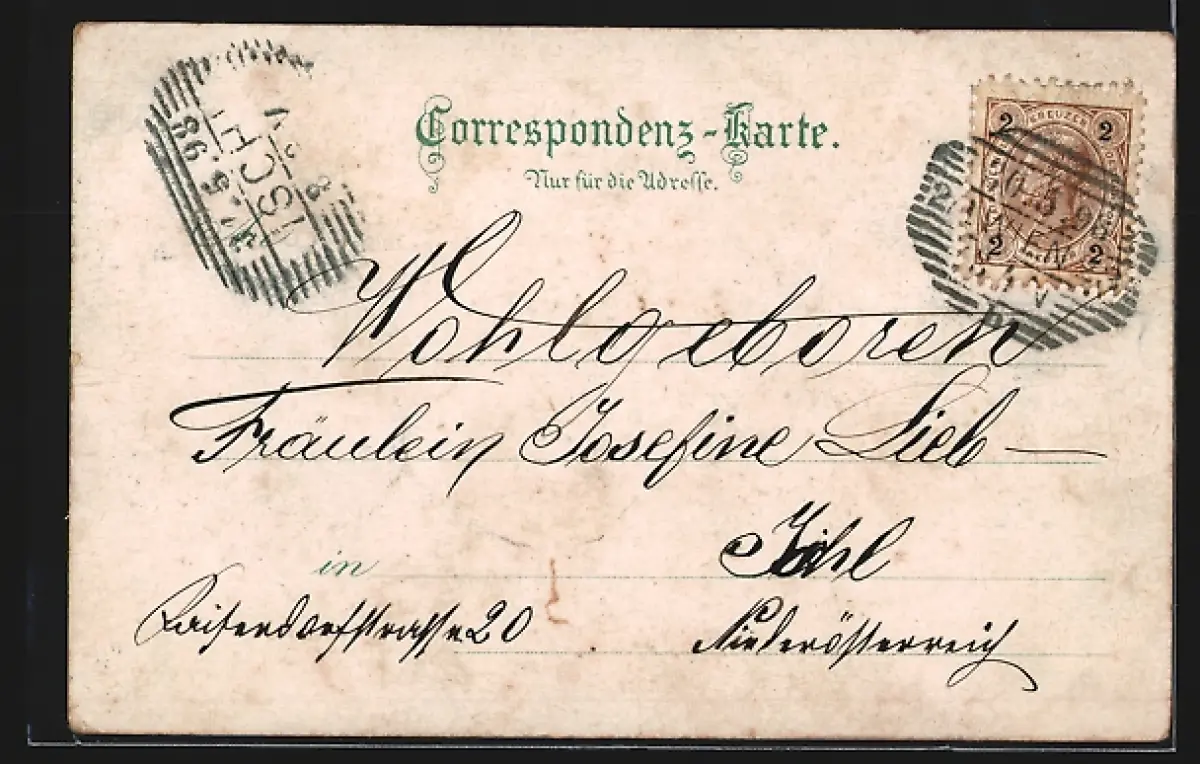 Correspondenz-Karte.
Nur für die Adresse.
2 KREUZER 2
2 2
WIEN
ISCHL
98
Wohlgeboren
Fräulein Josefine Lieb
in Ischl
20
Niederösterreich